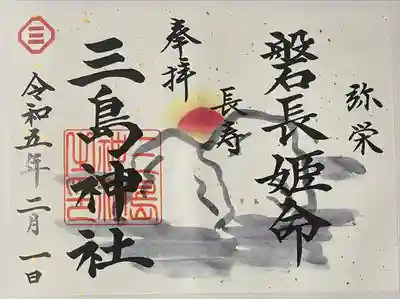 弥栄
磐長姫命
長寿
奉拝
三島神社
令和五年二月一日